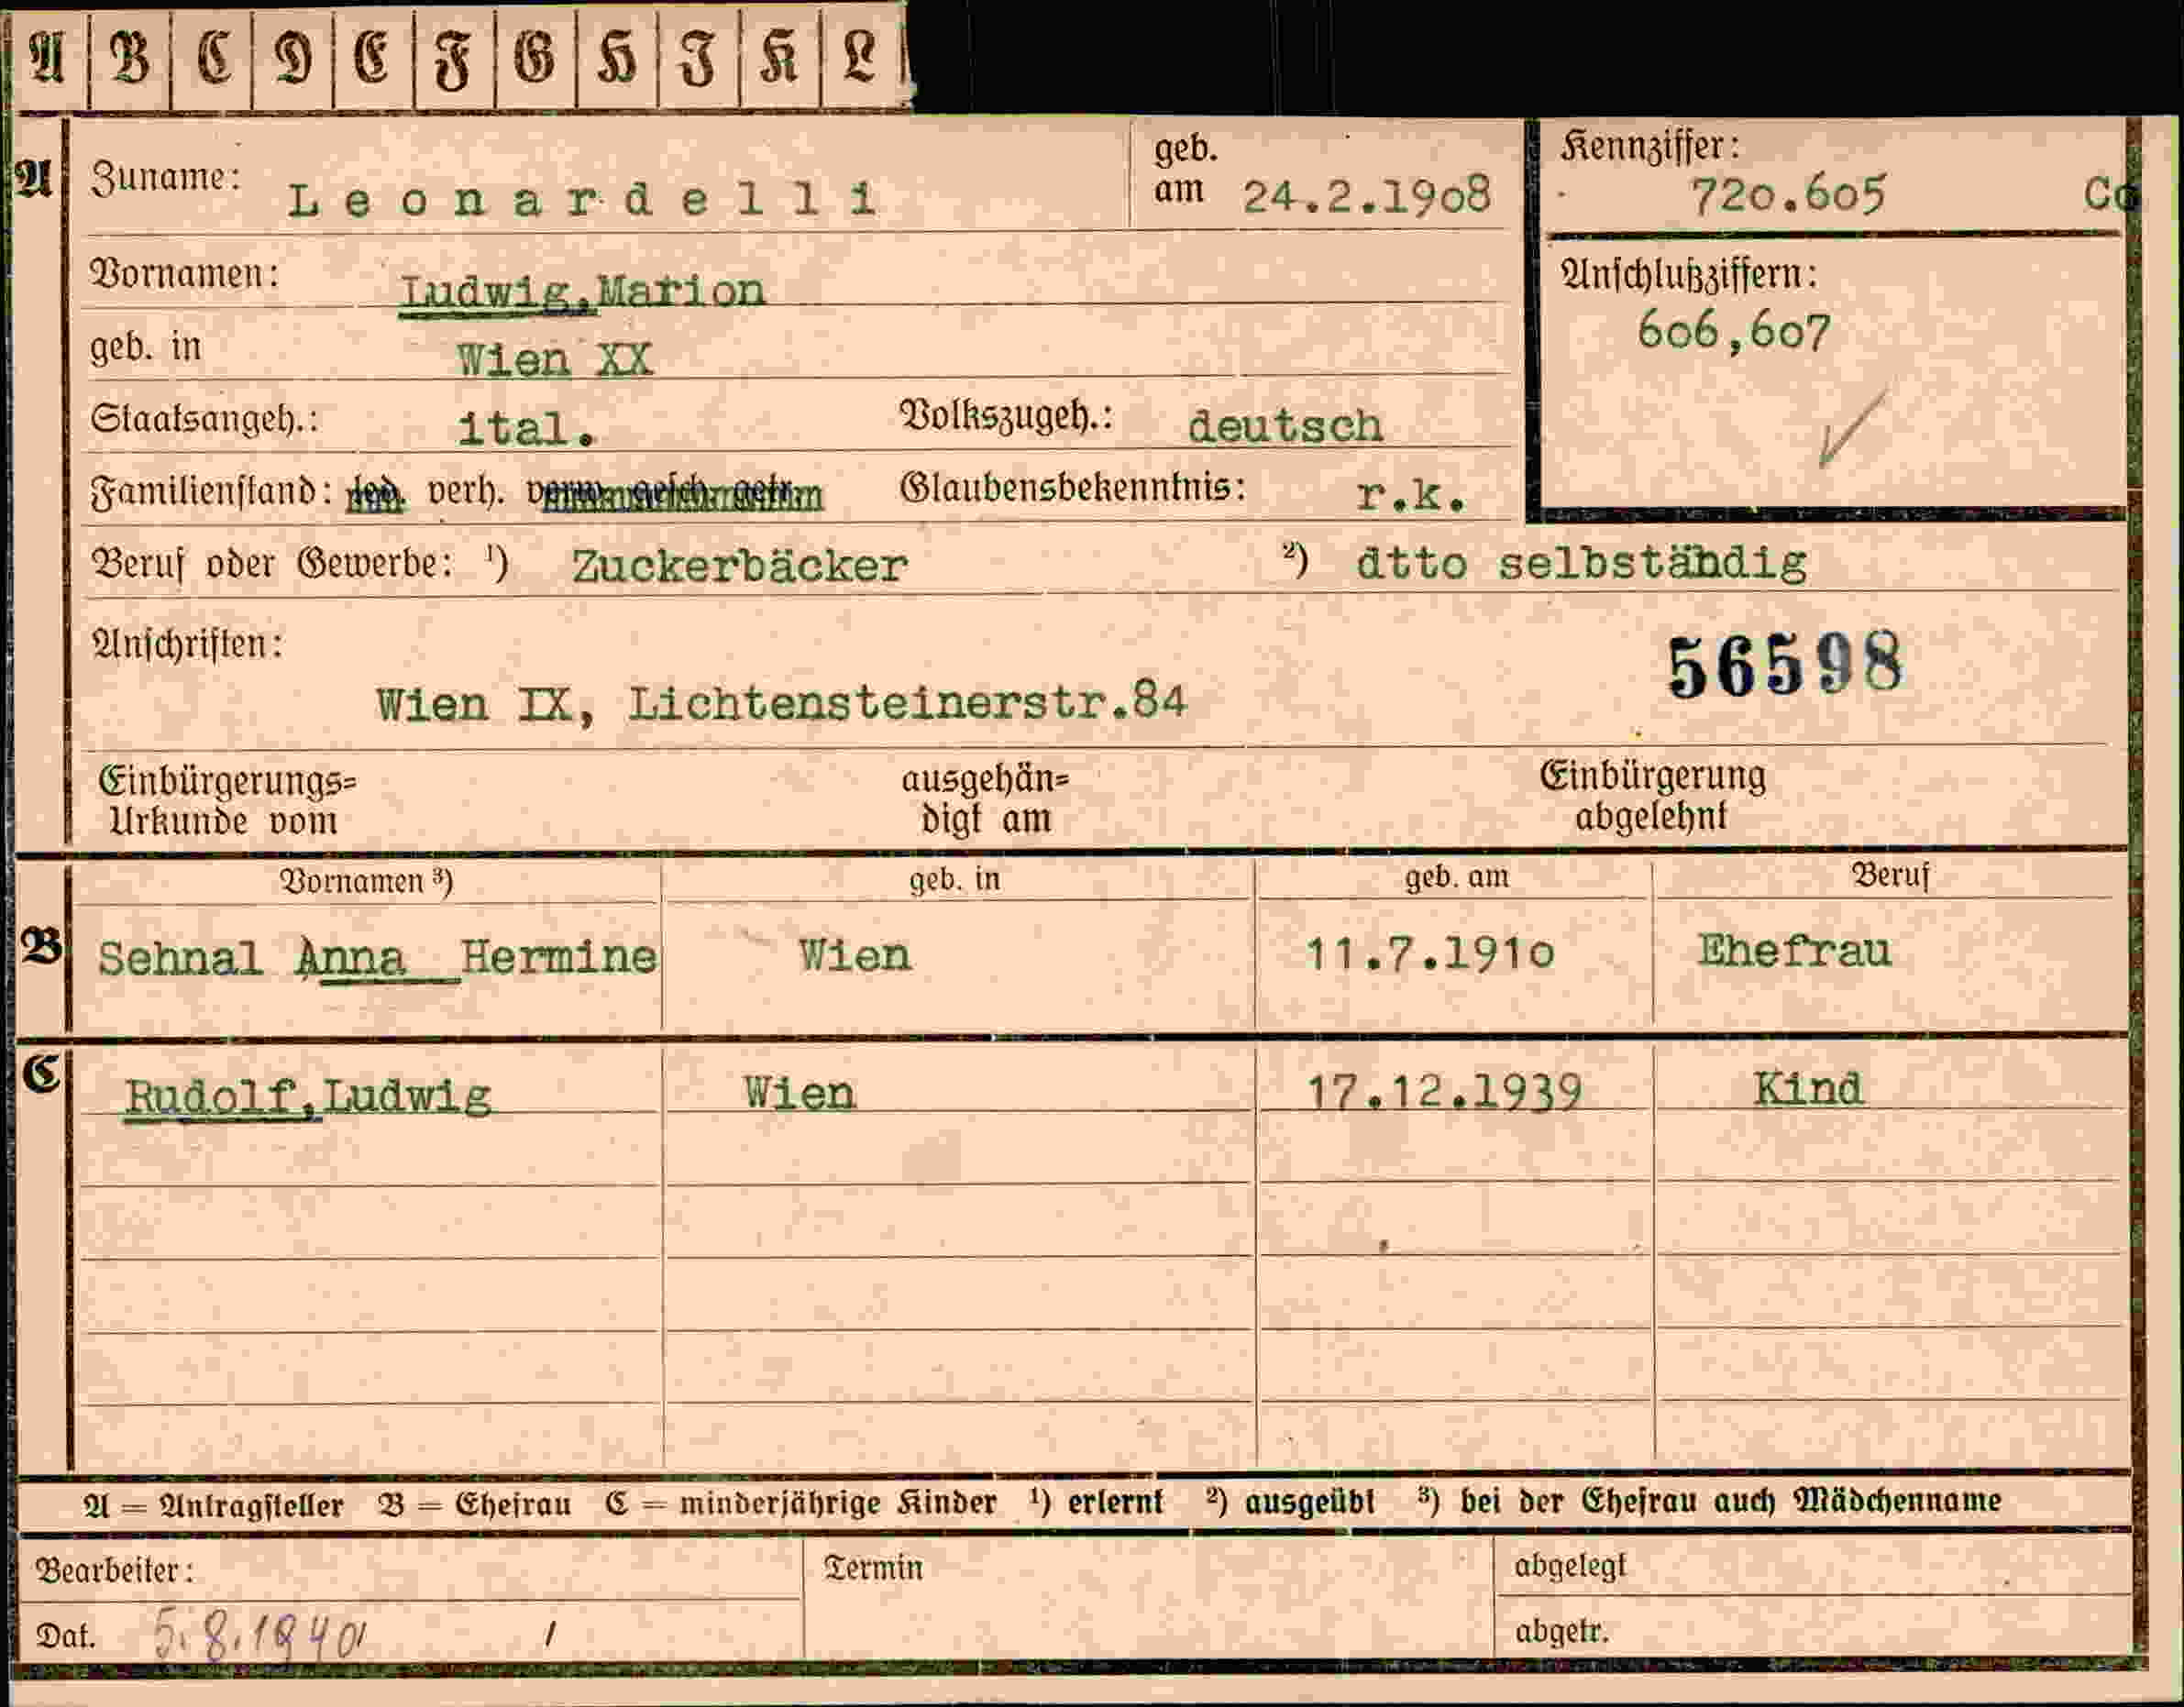 A B C D E F G H I K L
A Zuname: Leonardelli geb. am 24.2.1908 Kennziffer: 720.605 Co
Vornamen: Ludwig,Marion Anschlußziffern:
606,607
geb. in Wien XX
Staatsangeh.: ital. Volkszugeh.: deutsch
Familienstand: led. verh. verw. gesch. getr. Glaubensbekenntnis: r.k.
Beruf oder Gewerbe: ¹) Zuckerbäcker ²) dtto selbständig
Anschriften: 56598
Wien IX, Lichtensteinerstr.84
Einbürgerungs= ausgehän= Einbürgerung
Urkunde vom digt am abgelehnt
Vornamen ³) geb. in geb. am Beruf
B Sehnal Anna Hermine Wien 11.7.1910 Ehefrau
C Rudolf,Ludwig Wien 17.12.1939 Kind
A = Antragsteller B = Ehefrau C = minderjährige Kinder ¹) erlernt ²) ausgeübt ³) bei der Ehefrau auch Mädchenname
Bearbeiter: Termin abgelegt
Dat. 5.8.1940 abgetr.